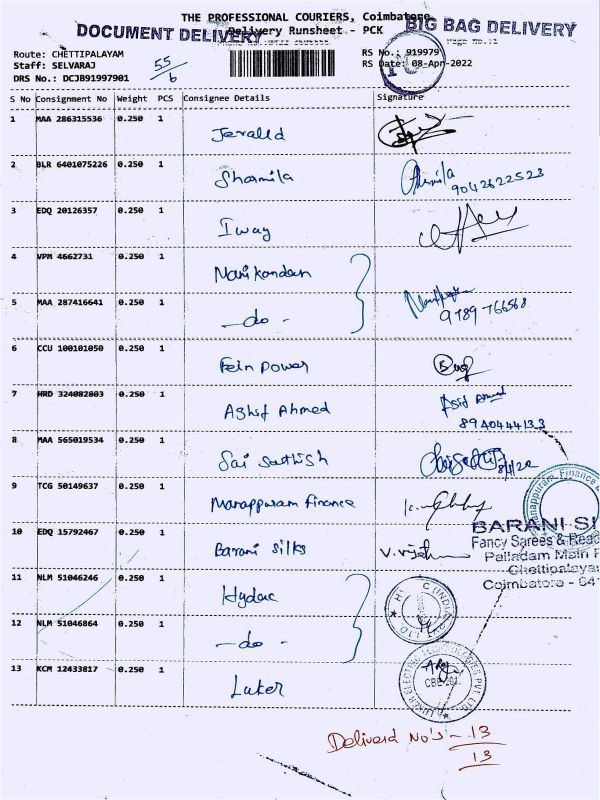 THE PROFESSIONAL COURIERS, Coimbatore
DOCUMENT DELIVERY
BIG BAG DELIVERY
Delivery Runsheet - PCK
Route: CHETTIPALAYAM
Staff: SELVARAJ
DRS No.: DCJB91997901
55/6
RS No.: 919979
RS Date: 08-Apr-2022
S No Consignment No Weight PCS Consignee Details Signature
1 MAA 286315536 0.250 1 Jerald
2 BLR 6401075226 0.250 1 Sharmila
9042622523
3 EDQ 20126357 0.250 1 Iway
4 VPM 4662731 0.250 1 Manikandan
5 MAA 287416641 0.250 1 -do-
9789-766568
6 CCU 100101050 0.250 1 Fein Power
7 HRD 324082803 0.250 1 Ashif Ahmed Asif Ahmed
8940444133
8 MAA 565019534 0.250 1 Sai Sathish
8/4/22
9 TCG 50149637 0.250 1 Manappuram Finance
10 EDQ 15792467 0.250 1 Barani Silks
BARANI SI
Fancy Sarees & Read
Palladam Main R
Chettipalaya
Coimbatore - 641
11 NLM 51046246 0.250 1 Hydac
12 NLM 51046864 0.250 1 -do-
13 KCM 12433817 0.250 1 Luker
Deliverd No's - 13
13